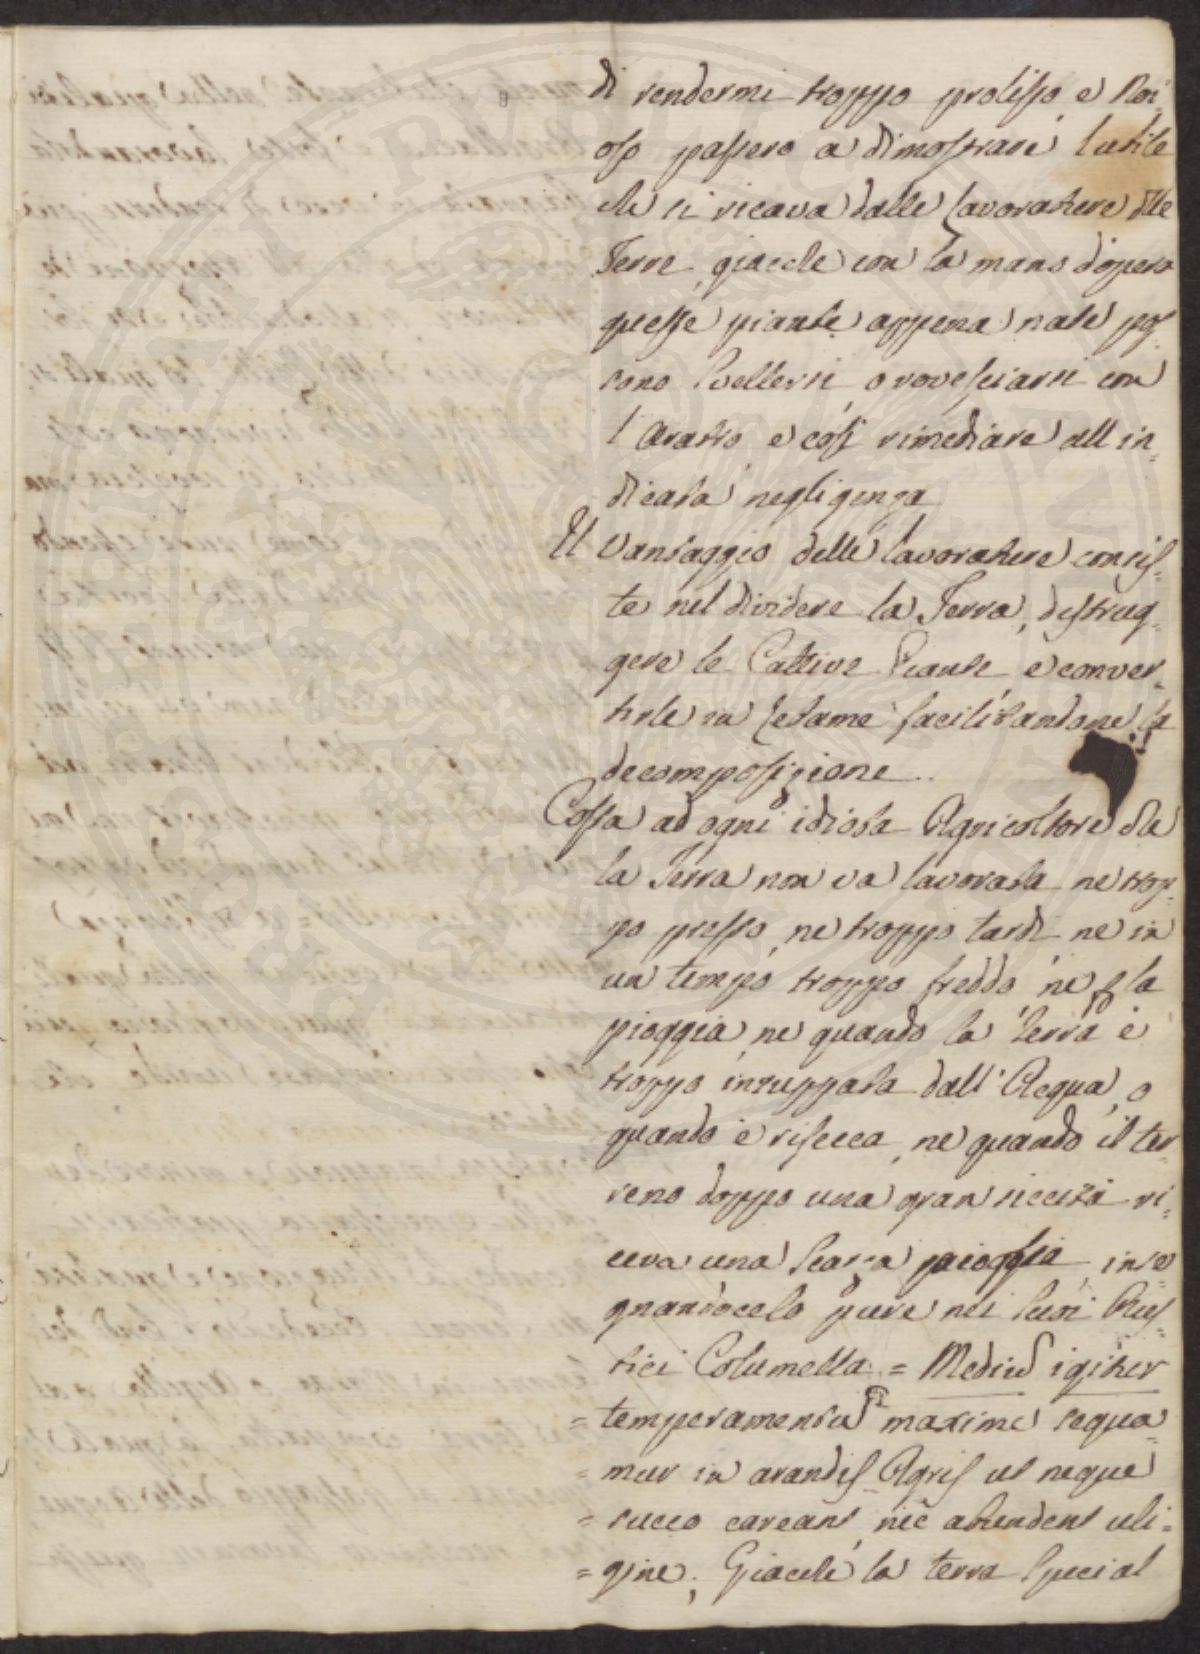 di rendermi troppo prolisso e Noi-
oso passero a dimostrare l'utile
che si ricava dalle lavorature dlle
Terre, giacche con la mano d'opera
queste piante appena nate pos-
sono svellersi, o rovesciarsi con
l'aratro e così rimediare all in-
dicata negligenza
Il Vantaggio delle lavorature consis-
te nel dividere la Terra, distrug-
gere le Cattive Piante e conver-
tirle in letame facilitandone la
decomposizione..
Cossa ad ogni idiota Agricoltore
la Terra non va lavorata ne trop-
po presto, ne troppo tardi ne in
un tempo troppo freddo ne p la
pioggia, ne quando la terra è
troppo inzuppata dall'Acqua, o
quando è risecca, ne quando il ter-
reno doppo una gran siccità ri-
ceva una scarza pioggia, inse
gnandocelo pure nei suoi Rus-
tici Columella = Mediu igitur
= temperamentu maxime sequa-
= mur in arandis Agris ut neque
= succo careant, nec abundent uli-
= gine; Giacche la terra special